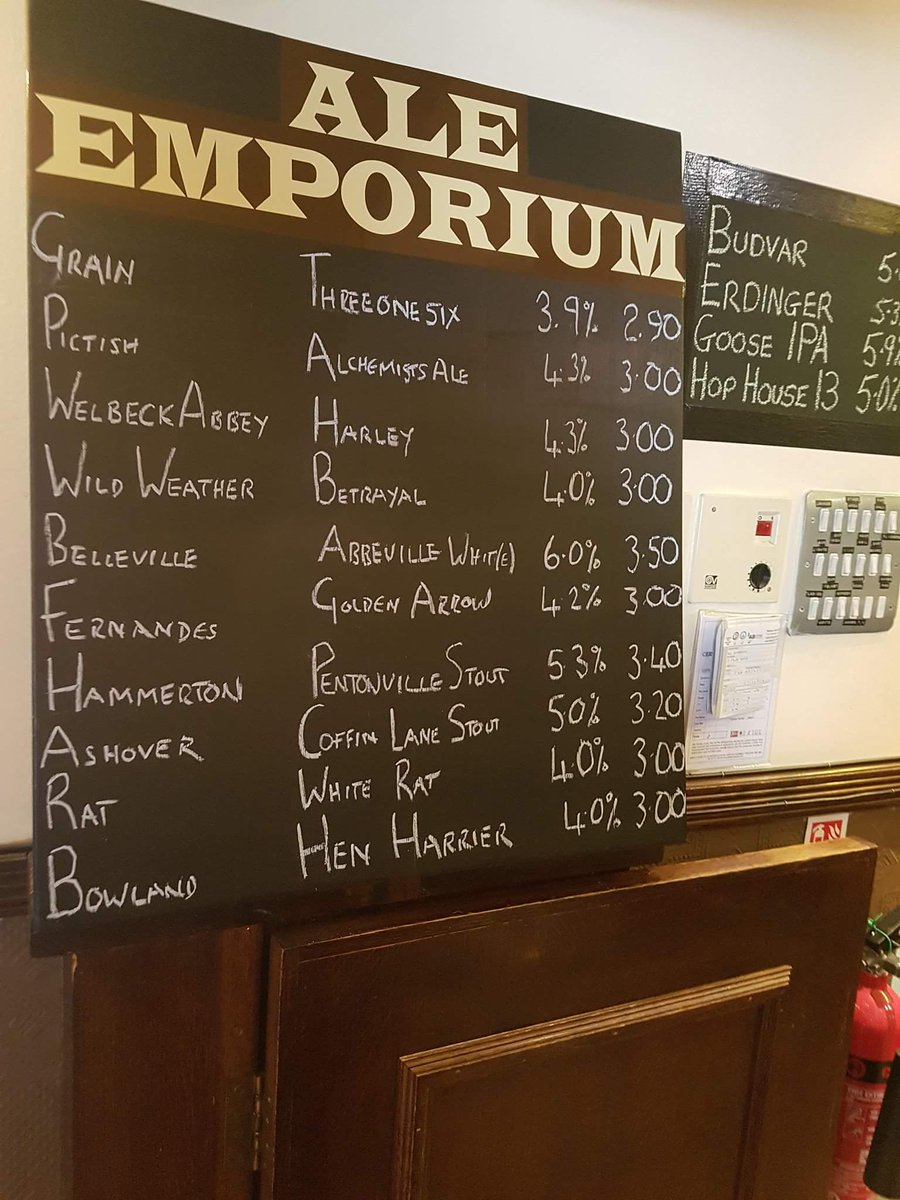 ALE
EMPORIUM
GRAIN THREEONESIX 3.9% 2.90
PICTISH ALCHEMISTS ALE 4.3% 3.00
WELBECK ABBEY HARLEY 4.3% 3.00
WILD WEATHER BETRAYAL 4.0% 3.00
BELLEVILLE ABBEVILLE WHIT(E) 6.0% 3.50
FERNANDES GOLDEN ARROW 4.2% 3.00
HAMMERTON PENTONVILLE STOUT 53% 3.40
ASHOVER COFFIN LANE STOUT 50% 3.20
RAT WHITE RAT 4.0% 3.00
BOWLAND HEN HARRIER 4.0% 3.00
BUDVAR 5.
ERDINGER 5.3
GOOSE IPA 5.9%
HOP HOUSE 13 5.0%